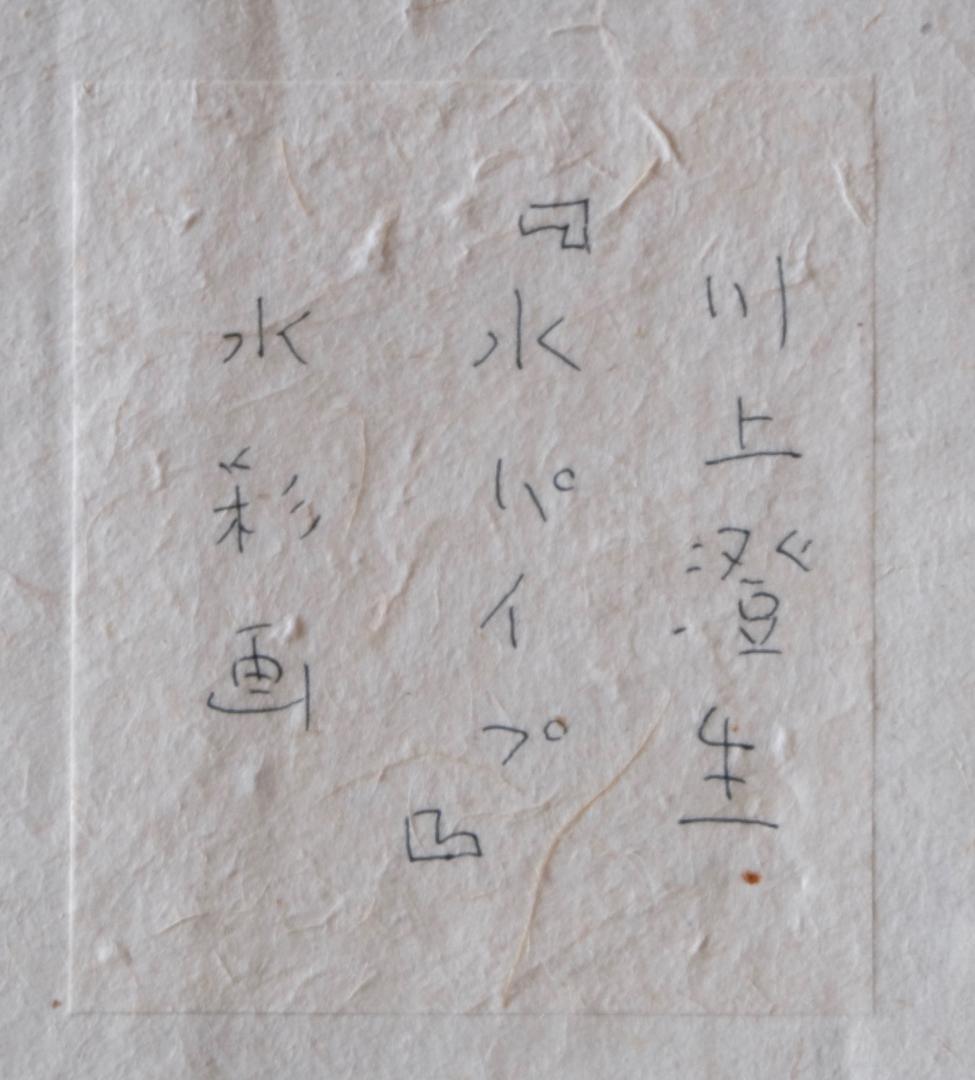 川上澄生
『水パイプ』
水彩画